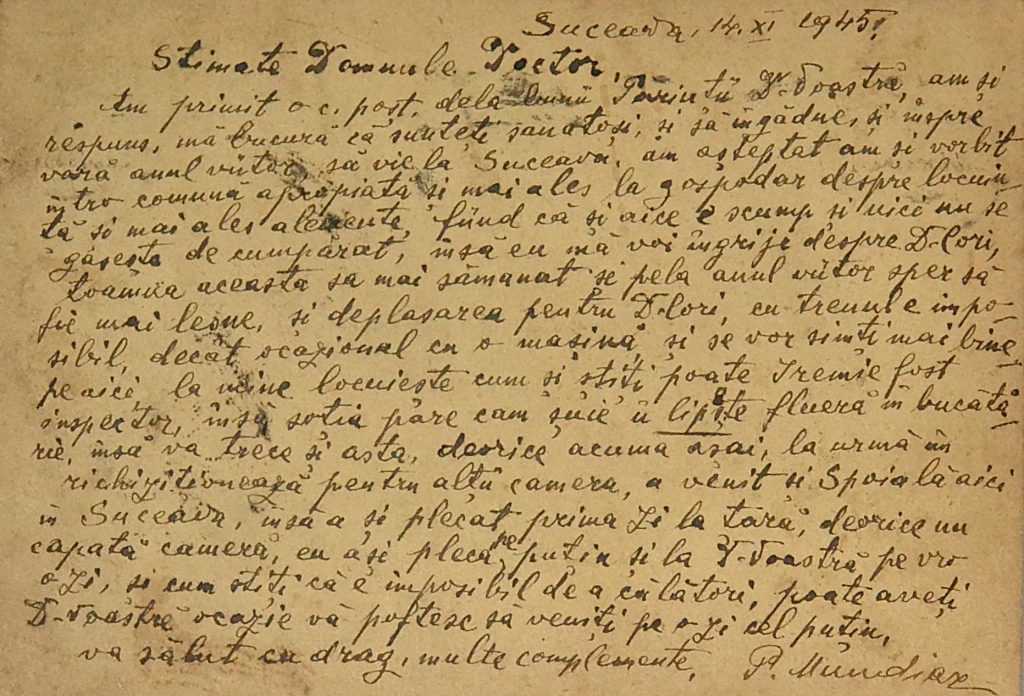 Suceava, 14. XI 1945.
Stimate Domnule Doctor,
Am primit o c. post. dela bunii Parintii Dv-Voastră, am si
răspuns, mă bucură că sunteti sanatosi, si să îngădue, si înspre
vară anul viitor să vie la Suceava, am asteptat am si vorbit
intro comună apropiată si mai ales la gospodar despre locuin-
tă si mai ales alemente, fiind că si aice e scump si nici nu se
găseste de cumpărat, insă eu mă voi ingriji despre D-lori,
toamna aceasta sa mai sămanat si pela anul viitor sper să
fie mai leone, si deplasarea pentru D-lori, cu trenul e impo-
sibil, decât ocazional cu o masină, si se vor simti mai bine
pe aici, la mine locuieste cum si stiti poate Iremie fost
inspector, însă sotia păre cam suie ü lipste flueră in bucătă-
rie, insă va trece si asta, deorice acuma asai, la urmă ün
richizitionează pentru altü camera, a venit si Spoială aici
in Suceava, insă a si plecat prima zi la tără, deorice nu
capată camera, eu asi plecă pe putin si la D-Voastră pe vro
o zi, si cum stiti că e imposibil de a călători, poate aveti
D-Voastre ocazie vă poftesc să veniti pe o zi cel putin,
va sălut cu drag, multe complemente, P.